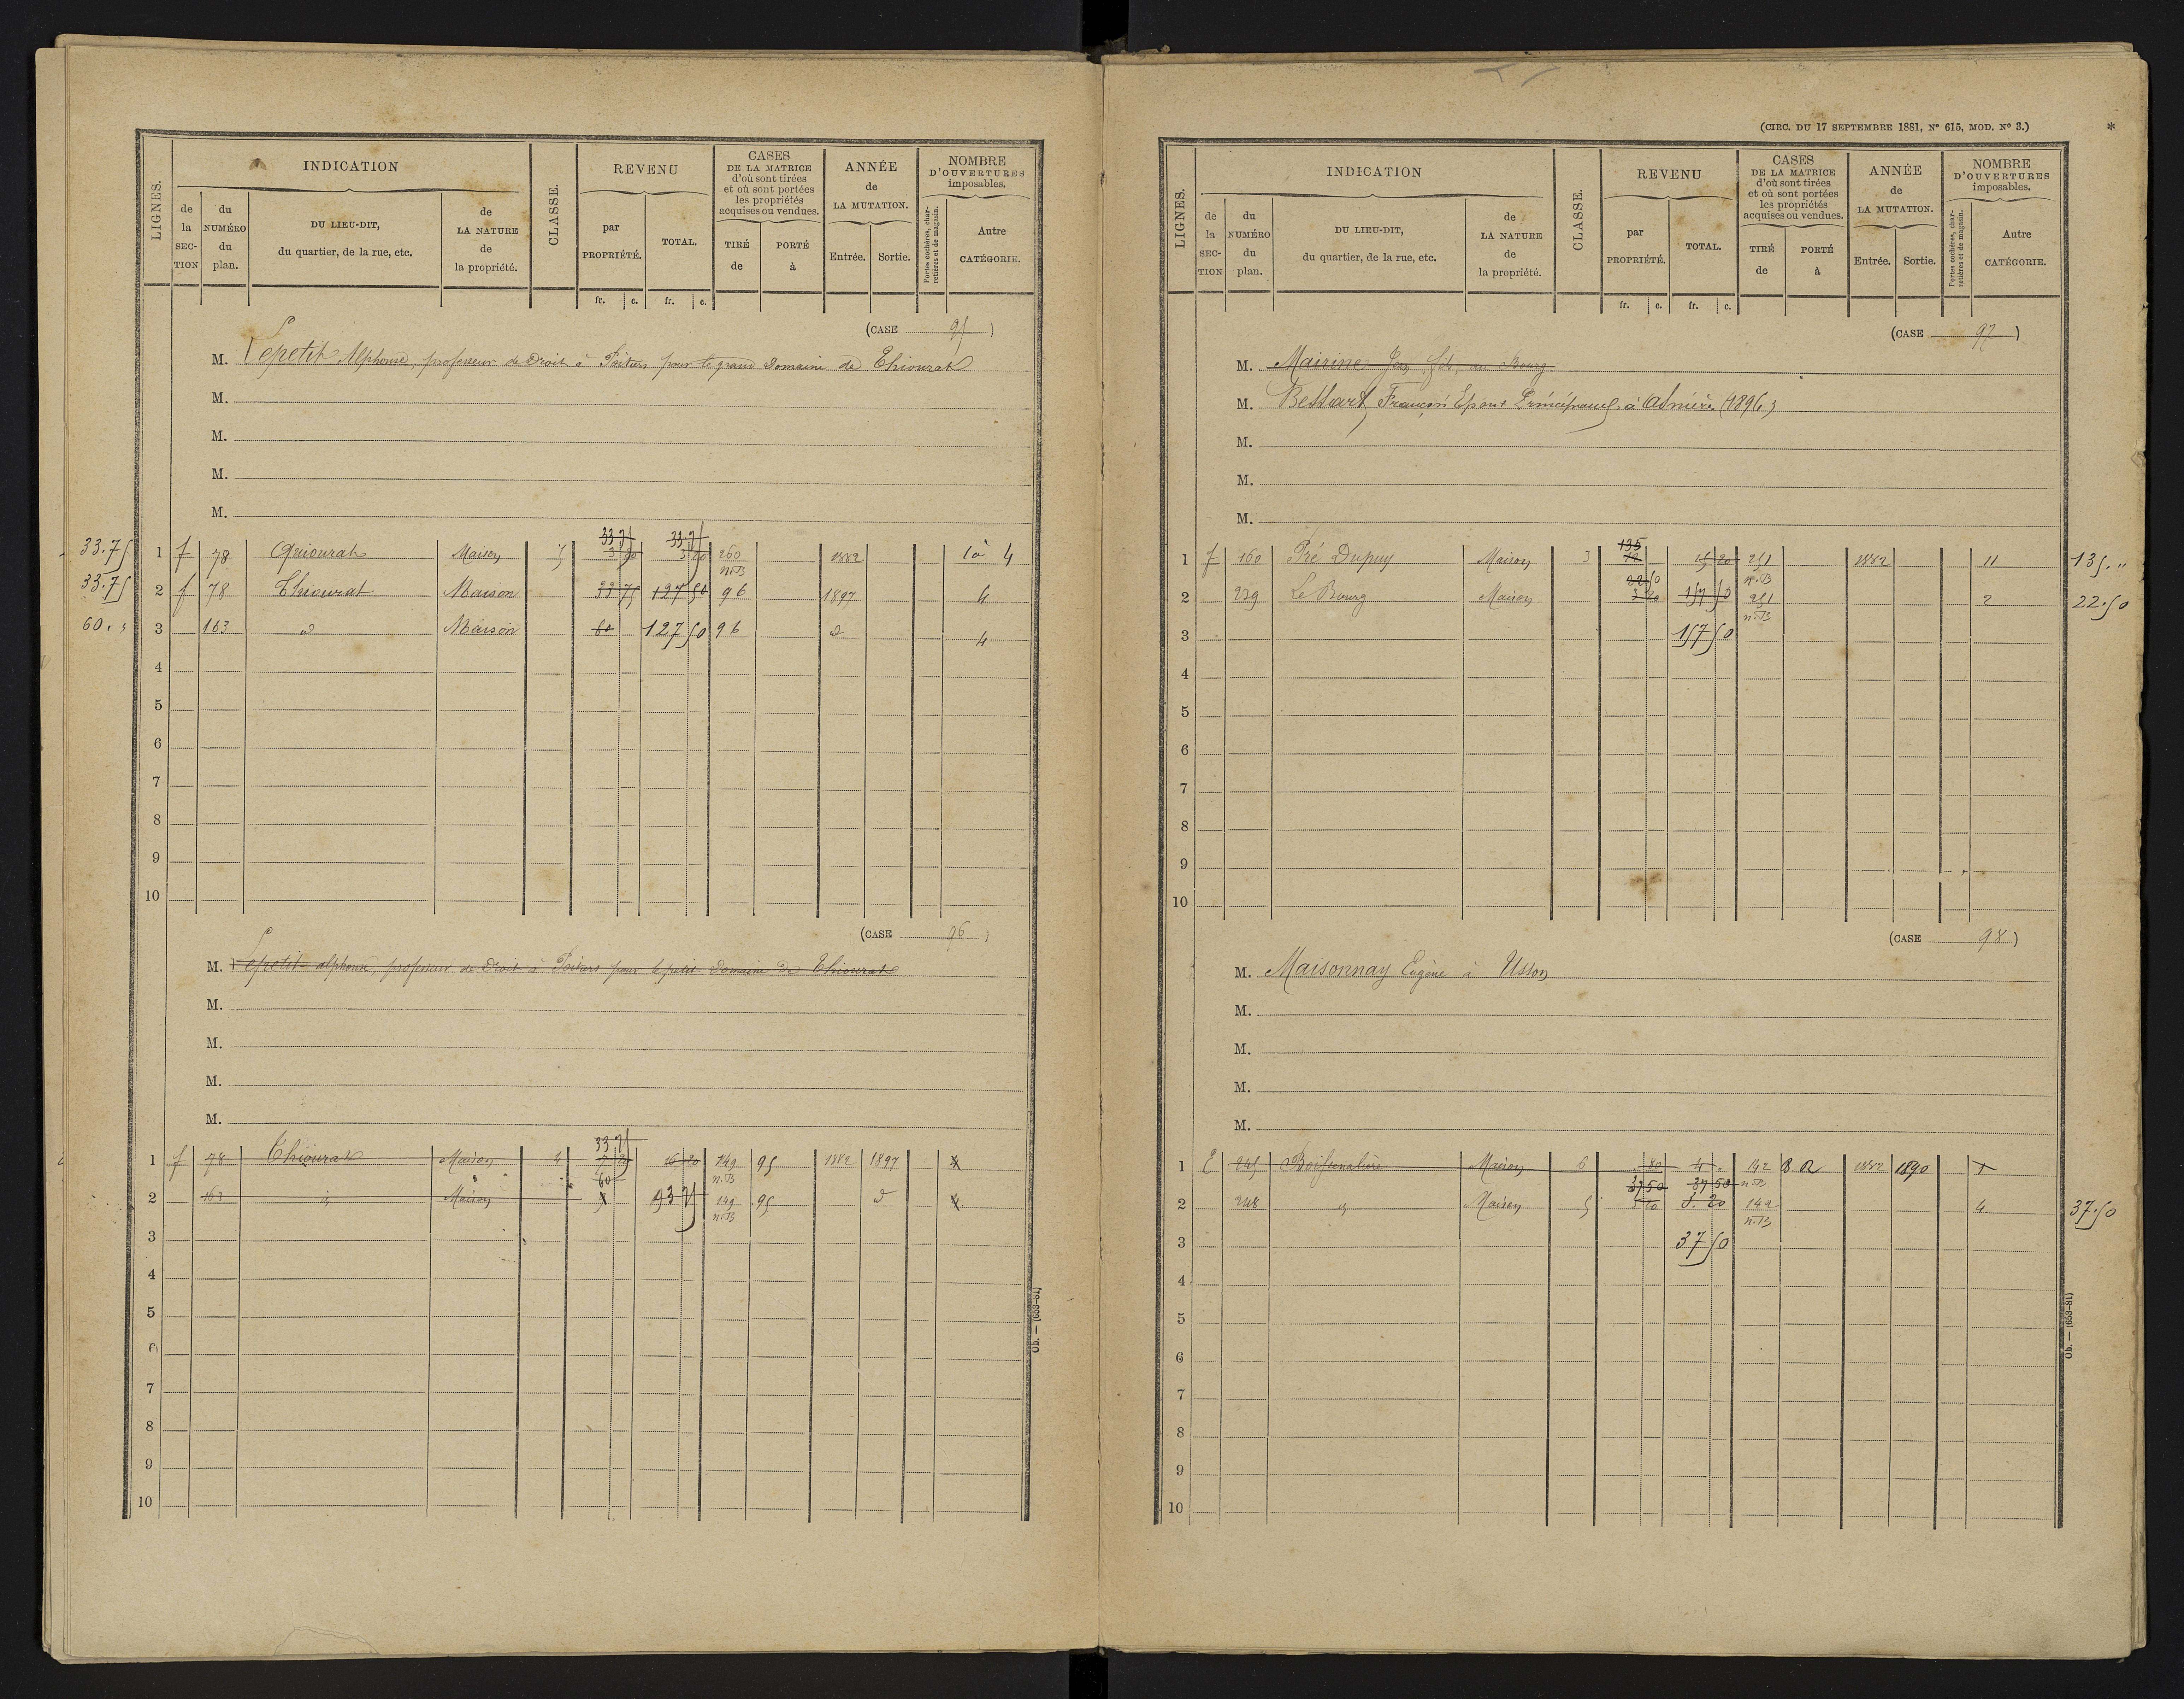 LIGNES.
INDICATION
de la SECTION
du NUMÉRO du plan.
DU LIEU-DIT, du quartier, de la rue, etc.
de LA NATURE de la propriété.
CLASSE.
REVENU
par PROPRIÉTÉ.
TOTAL.
CASES DE LA MATRICE d'où sont tirées et où sont portées les propriétés acquises ou vendues.
TIRÉ de
PORTÉ à
ANNÉE de LA MUTATION.
Entrée.
Sortie.
NOMBRE D'OUVERTURES imposables.
Portes cochères, charretières et de magasin.
Autre CATÉGORIE.
fr. c. fr. c.
(CASE 95)
M. Lepetit Alphonse, professeur de Droit à Poitiers pour le grand Domaine de Thiourat
M.
M.
M.
M.
33.75 33.75
33.75 1 f 78 Maison 5 3 20 3 20 260 n.B 1882 1 à 4
33.75 2 f 78 Thiourat Maison 33 75 127 50 96 1897 4
60. " 3 163 d Maison 60 127 50 96 d 4
4
5
6
7
8
9
10
(CASE 96)
M. Lepetit alphonse, professeur de Droit à Poitiers pour le petit Domaine de Thiourat
M.
M.
M.
M.
33 75
1 f 78 Thiourat Maison 4 7 20 16 20 149 n.B 95 1882 1897 4
60
2 163 id Maison 93 75 149 n.B 95 d 4
3
4
5
6
7
8
9
10
Ob. — (653-81)
(CIRC. DU 17 SEPTEMBRE 1881, N° 615, MOD. N° 3.)
*
LIGNES.
INDICATION
de la SECTION
du NUMÉRO du plan.
DU LIEU-DIT, du quartier, de la rue, etc.
de LA NATURE de la propriété.
CLASSE.
REVENU
par PROPRIÉTÉ.
TOTAL.
CASES DE LA MATRICE d'où sont tirées et où sont portées les propriétés acquises ou vendues.
TIRÉ de
PORTÉ à
ANNÉE de LA MUTATION.
Entrée.
Sortie.
NOMBRE D'OUVERTURES imposables.
Portes cochères, charretières et de magasin.
Autre CATÉGORIE.
fr. c. fr. c.
(CASE 97)
M. Mairine Jean fils, au Bourg
M. François Epoux à Asnières (1896)
M.
M.
M.
135
1 f 160 Pré Dupuy Maison 3 12 15 20 251 n.B 1882 11 135. "
22 50
2 239 Le Bourg Maison 3 20 157 50 251 n.B 2 22.50
3 157 50
4
5
6
7
8
9
10
(CASE 98)
M. Maisonnay Eugène à Usson
M.
M.
M.
M.
1 E 245 Maison 6 80 4 . 142 n.B 1882 1890 1
37 50 37 50
2 248 " Maison 5 3 20 3. 20 142 n.B 4 37.50
3 37 50
4
5
6
7
8
9
10
Ob. — (653-81)